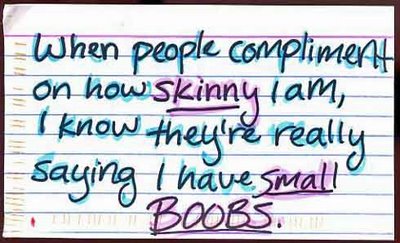 When people compliment
on how skinny I am,
I know they're really
saying I have small
BOOBS.